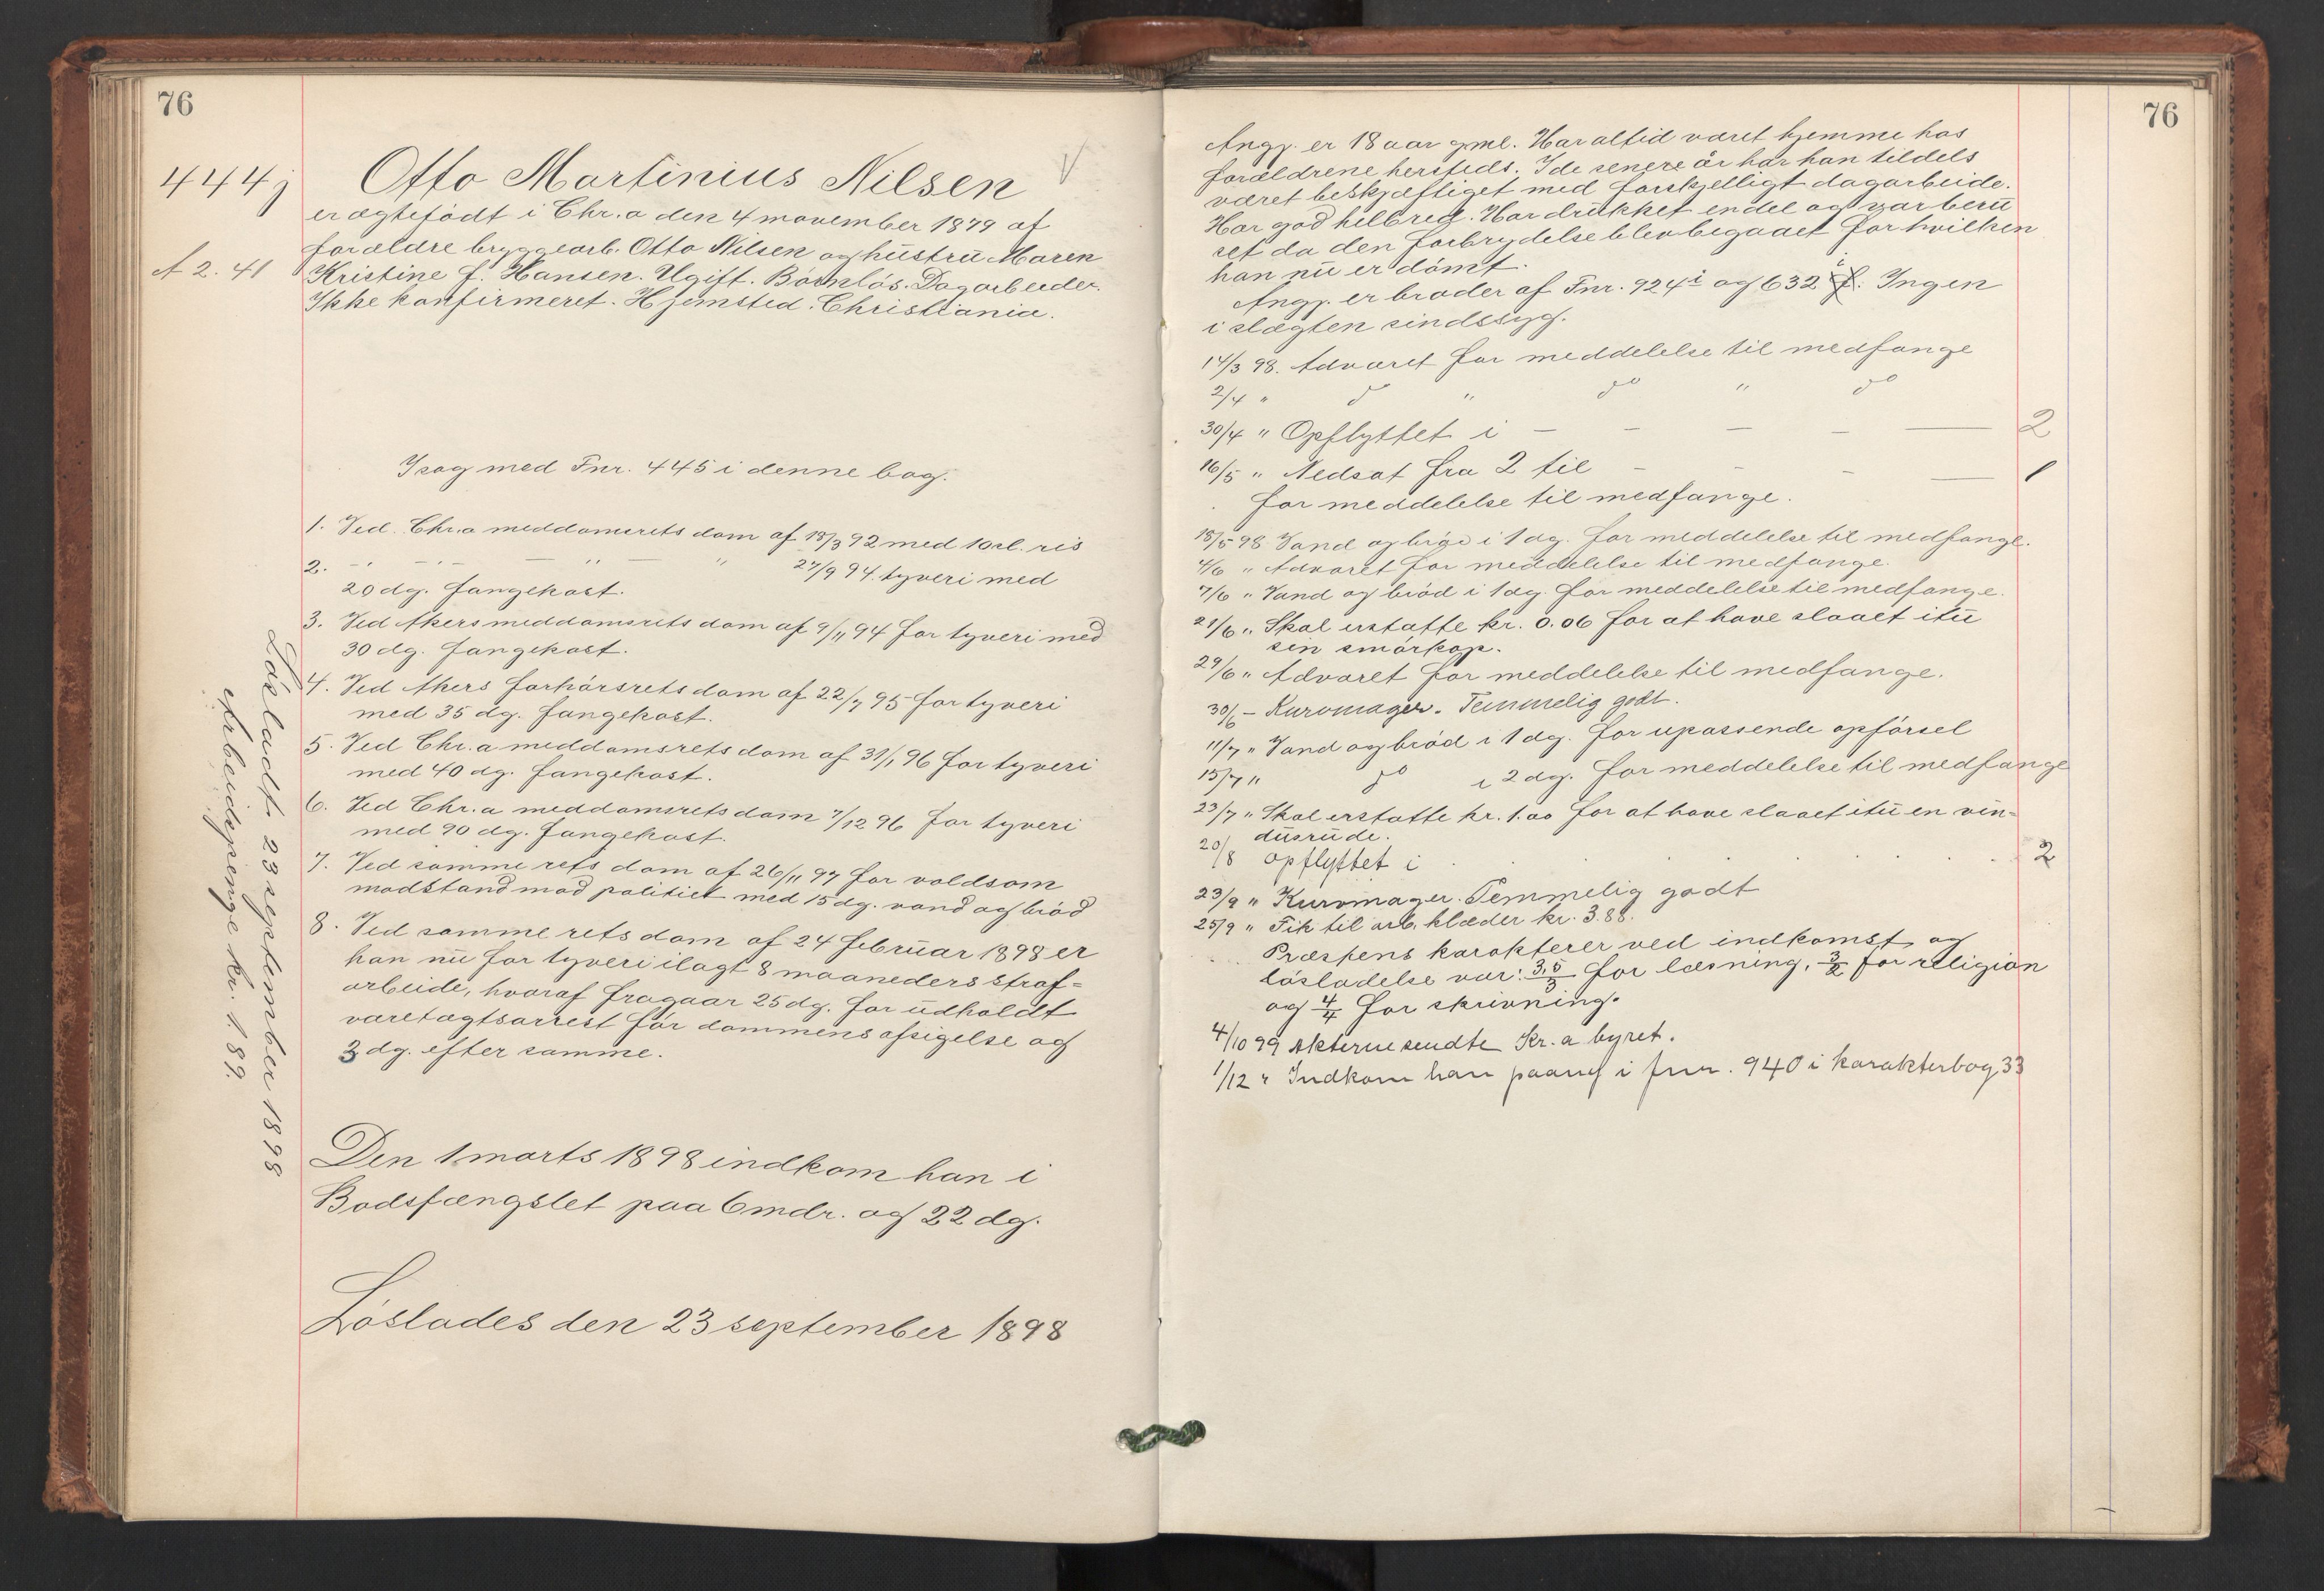 76
444j
A 2. 41
Otto Martinius Nilsen
er ægtefödt i Chr.a den 4 november 1879 af
forældre bryggearb. Otto Nilsen og hustru Maren
Kristine f. Hansen. Ugift. Barnlös. Dagarbeider.
Ikke konfirmeret. Hjemsted. Christiania.
I sag med Fnr. 445 i denne bog.
1. Ved Chr.a meddomsrets dom af 18/3 92 med 10 sl. ris
2. -"- -"- — " — " 27/9 94. tyveri med
20 dg. fangekost.
3. Ved Akers meddomsrets dom af 9/11 94 for tyveri med
30 dg. fangekost.
4. Ved Akers forhörsrets dom af 22/7 95 for tyveri
med 35 dg. fangekost.
5. Ved Chr.a meddomsrets dom af 31/1 96 for tyveri
med 40 dg. fangekost.
6. Ved Chr.a meddomsrets dom 7/12 96 for tyveri
med 90 dg. fangekost.
7. Ved samme rets dom af 26/11 97 for voldsom
modstand mod politiet med 15 dg. vand og bröd
8. Ved samme rets dom af 24 februar 1898 er
han nu for tyveri ilagt 8 maaneders straf=
arbeide, hvoraf fragaar 25 dg. for udholdt
varetægtsarrest för dommens afsigelse og
3 dg. efter samme.
Den 1 marts 1898 indkom han i
Bodsfængslet paa 6 mdr. og 22 dg.
Löslades den 23 september 1898
Lösladt 23 september 1898
Arbeidspenge kr. 1.89.
76
Angj. er 18 aar gml. Har altid været hjemme hos
forældrene hersteds. I de senere år har han tildels
været beskjæftiget med forskjelligt dagarbeide.
Har god helbred. Har drukket endel og var beru
set da den forbrydelse blev begaaet for hvilken
han nu er dömt.
Angj. er broder af Fnr. 924 i og 632 i. Ingen
i slægten sindssyg.
14/3 98. Advaret for meddelelse til medfange
2/4 " do " do " do
30/4 " Opflyttet i — — — — — 2
16/5 " Nedsat fra 2 til - - - — 1
for meddelelse til medfange.
18/5 98 Vand og bröd i 1 dg. for meddelelse til medfange.
4/6 " Advaret for meddelelse til medfange.
7/6 " Vand og bröd i 1 dg. for meddelelse til medfange.
21/6 " Skal erstatte kr. 0.06 for at have slaaet itu
sin smörkop.
29/6 " Advaret for meddelelse til medfange.
30/6 - Kurvmager. Temmelig godt.
11/7 " Vand og bröd i 1 dg. for upassende opförsel
15/7 " do i 2 dg. for meddelelse til medfange
23/7 " Skal erstatte kr. 1.00 for at have slaaet itu en vin=
dusrude.
20/8 opflyttet i . . . . . . 2
23/9 " Kurvmager. Temmelig godt
25/9 " Fik til arb. klæder kr. 3.88.
Præstens karakterer ved indkomst og
lösladelse var: 3,5/3 for læsning, 3/2 for religion
og 4/4 for skrivning.
4/10 99 Akterne sendte Kr.a byret.
1/12 " Indkom han paany i fnr. 940 i karakterbog 33